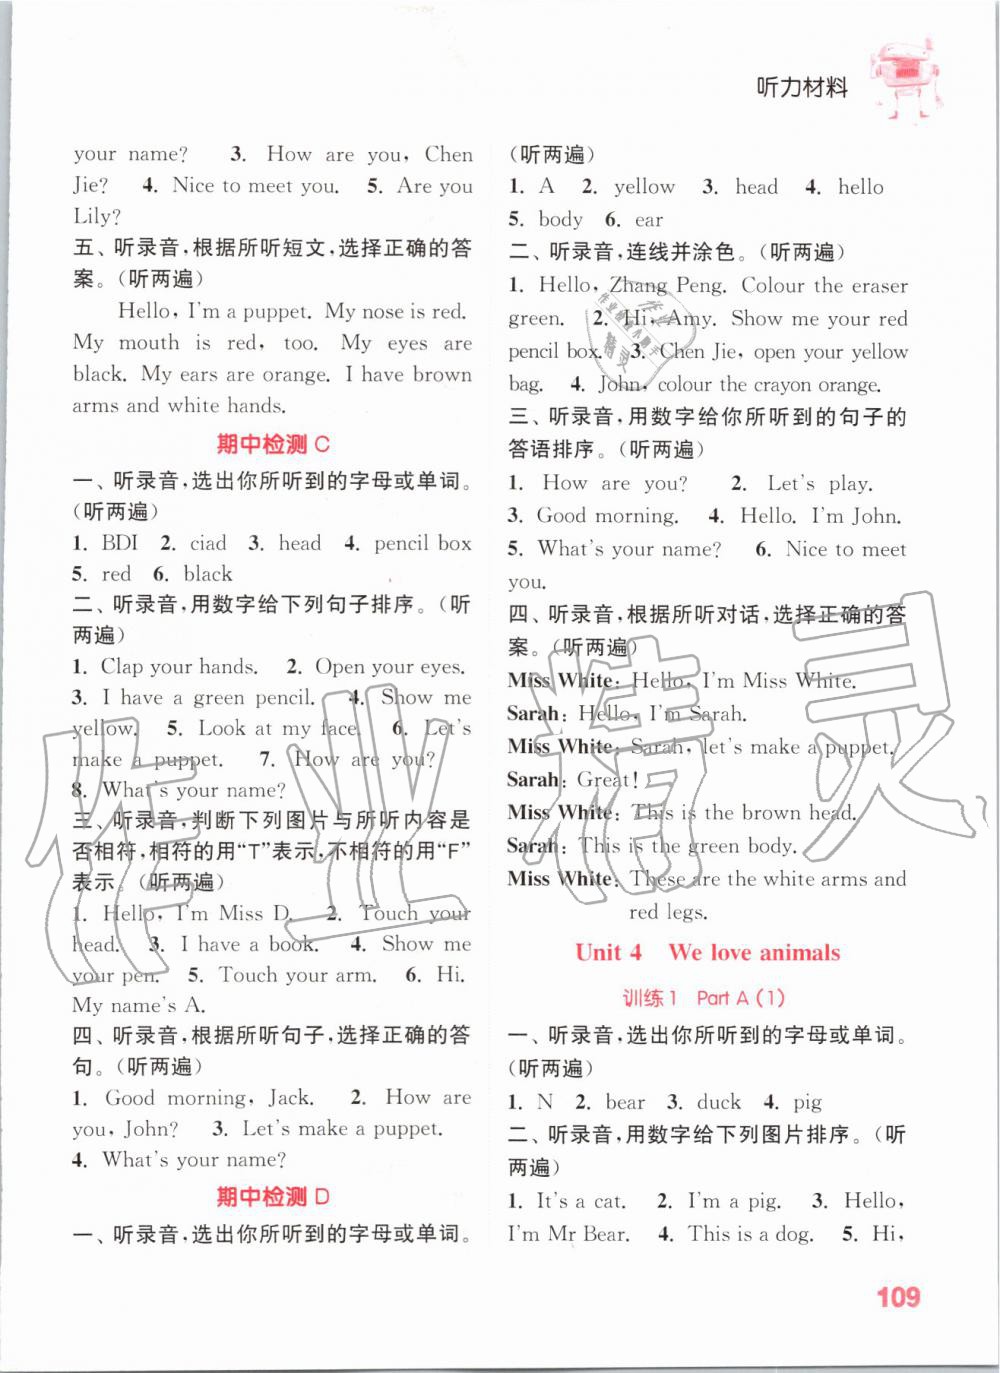 听力材料
your name? 3. How are you, Chen
Jie? 4. Nice to meet you. 5. Are you
Lily?
五、听录音,根据所听短文,选择正确的答
案。(听两遍)
Hello, I'm a puppet. My nose is red.
My mouth is red, too. My eyes are
black. My ears are orange. I have brown
arms and white hands.
期中检测 C
一、听录音,选出你所听到的字母或单词。
(听两遍)
1. BDI 2. ciad 3. head 4. pencil box
5. red 6. black
二、听录音,用数字给下列句子排序。(听
两遍)
1. Clap your hands. 2. Open your eyes.
3. I have a green pencil. 4. Show me
yellow. 5. Look at my face. 6. Let's
make a puppet. 7. How are you?
8. What's your name?
三、听录音,判断下列图片与所听内容是
否相符,相符的用“T”表示,不相符的用“F”
表示。(听两遍)
1. Hello, I'm Miss D. 2. Touch your
head. 3. I have a book. 4. Show me
your pen. 5. Touch your arm. 6. Hi.
My name's A.
四、听录音,根据所听句子,选择正确的答
句。(听两遍)
1. Good morning, Jack. 2. How are
you, John? 3. Let's make a puppet.
4. What's your name?
期中检测 D
一、听录音,选出你所听到的字母或单词。
(听两遍)
1. A 2. yellow 3. head 4. hello
5. body 6. ear
二、听录音,连线并涂色。(听两遍)
1. Hello, Zhang Peng. Colour the eraser
green. 2. Hi, Amy. Show me your red
pencil box. 3. Chen Jie, open your yellow
bag. 4. John, colour the crayon orange.
三、听录音,用数字给你所听到的句子的
答语排序。(听两遍)
1. How are you? 2. Let's play.
3. Good morning. 4. Hello. I'm John.
5. What's your name? 6. Nice to meet
you.
四、听录音,根据所听对话,选择正确的答
案。(听两遍)
Miss White: Hello, I'm Miss White.
Sarah: Hello, I'm Sarah.
Miss White: Sarah, let's make a puppet.
Sarah: Great!
Miss White: This is the brown head.
Sarah: This is the green body.
Miss White: These are the white arms and
red legs.
Unit 4 We love animals
训练1 Part A (1)
一、听录音,选出你所听到的字母或单词。
(听两遍)
1. N 2. bear 3. duck 4. pig
二、听录音,用数字给下列图片排序。(听
两遍)
1. It's a cat. 2. I'm a pig. 3. Hello,
I'm Mr Bear. 4. This is a dog. 5. Hi,
109
作业精灵